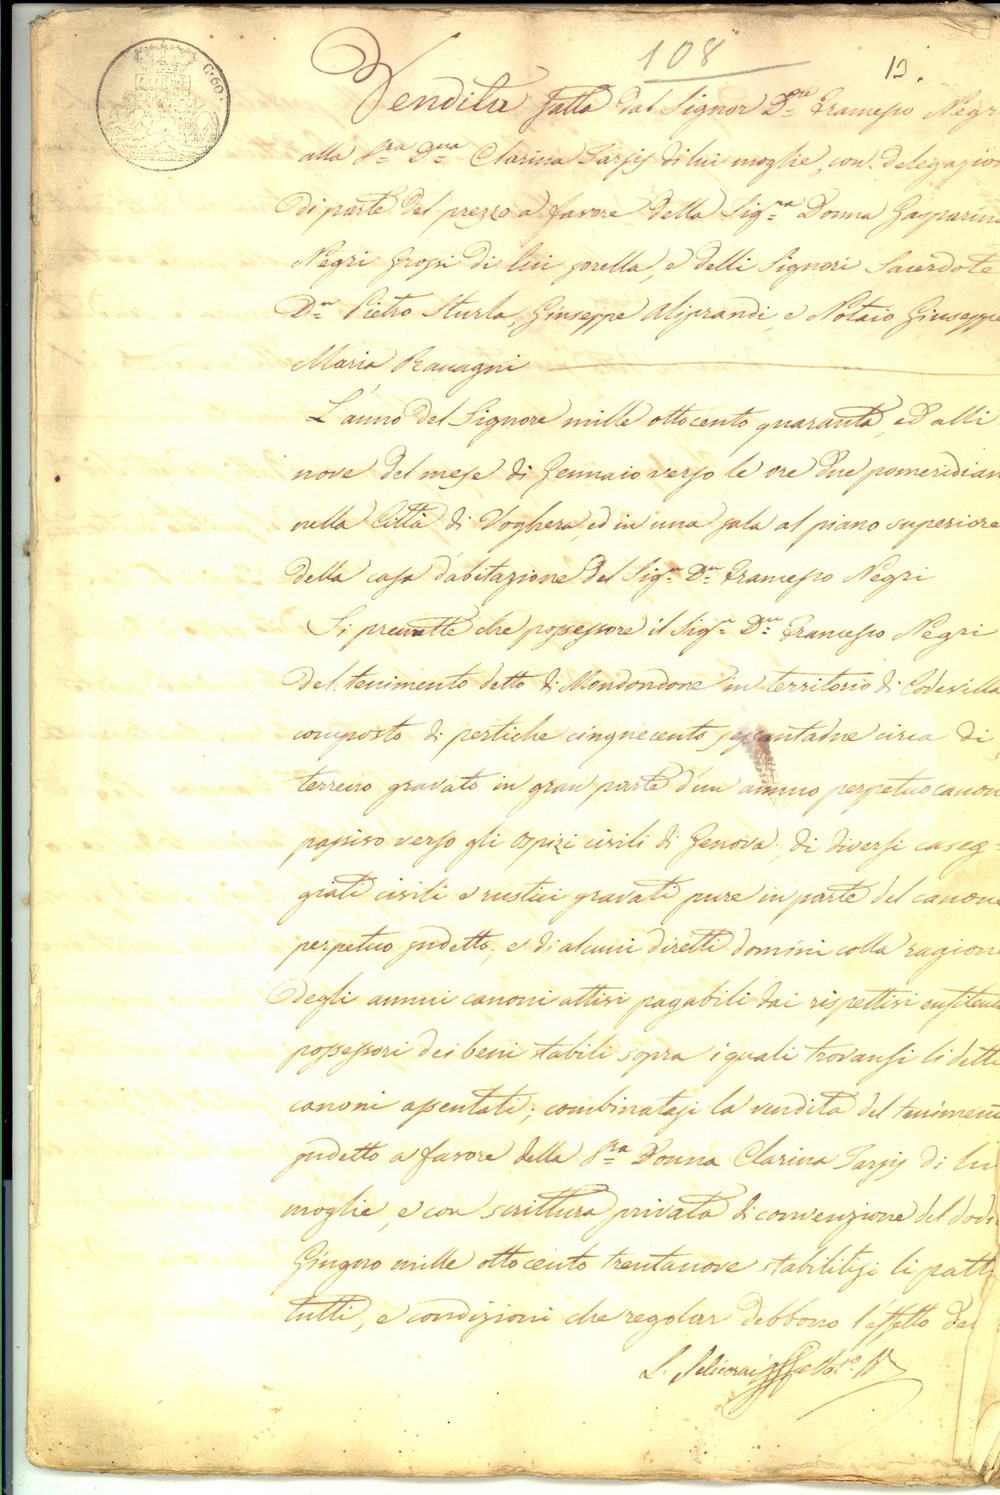 108
13.
C. 60.
Vendita fatta dal Signor Dn. Francesco Negri
alla Sra. Dna. Clarina Tarsis di lui moglie, con delegazion
di parte del prezzo a favore della Sigra. Donna Gasparina
Negri Grossi di lui sorella, e delli Signori Sacerdote
Dn. Pietro Sturla, Giuseppe Aliprandi, e Notaio Giuseppe
Maria Ravagni
L'anno del Signore mille ottocento quaranta, ed alli
nove del mese di Gennaio verso le ore due pomeridian
nella Città di Voghera, ed in una sala al piano superiore
della casa d'abitazione del Sigr. Dn. Francesco Negri
Si premette che possessore il Sigr. Dn. Francesco Negri
del tenimento detto di Mondondone in territorio di Codevilla
composto di pertiche cinquecento sessantadue circa di
terreno gravato in gran parte d'un annuo perpetuo canon
passivo verso gli Ospizi civili di Genova, di diversi caseg-
giati civili e rustici gravati pure in parte del canone
perpetuo sudetto, e di alcuni diretti domini colla ragione
degli annui canoni attivi pagabili dai rispettivi enfiteuti
possessori dei beni stabili sopra i quali trovansi li detti
canoni assentati; combinatasi la vendita del tenimento
sudetto a favore della Sra. Donna Clarina Tarsis di lui
moglie, e con scrittura privata di convenzione del dodi
Giugno mille ottocento trentanove stabilitisi li patti
tutti, e condizioni che regolar debbono l'effetto del